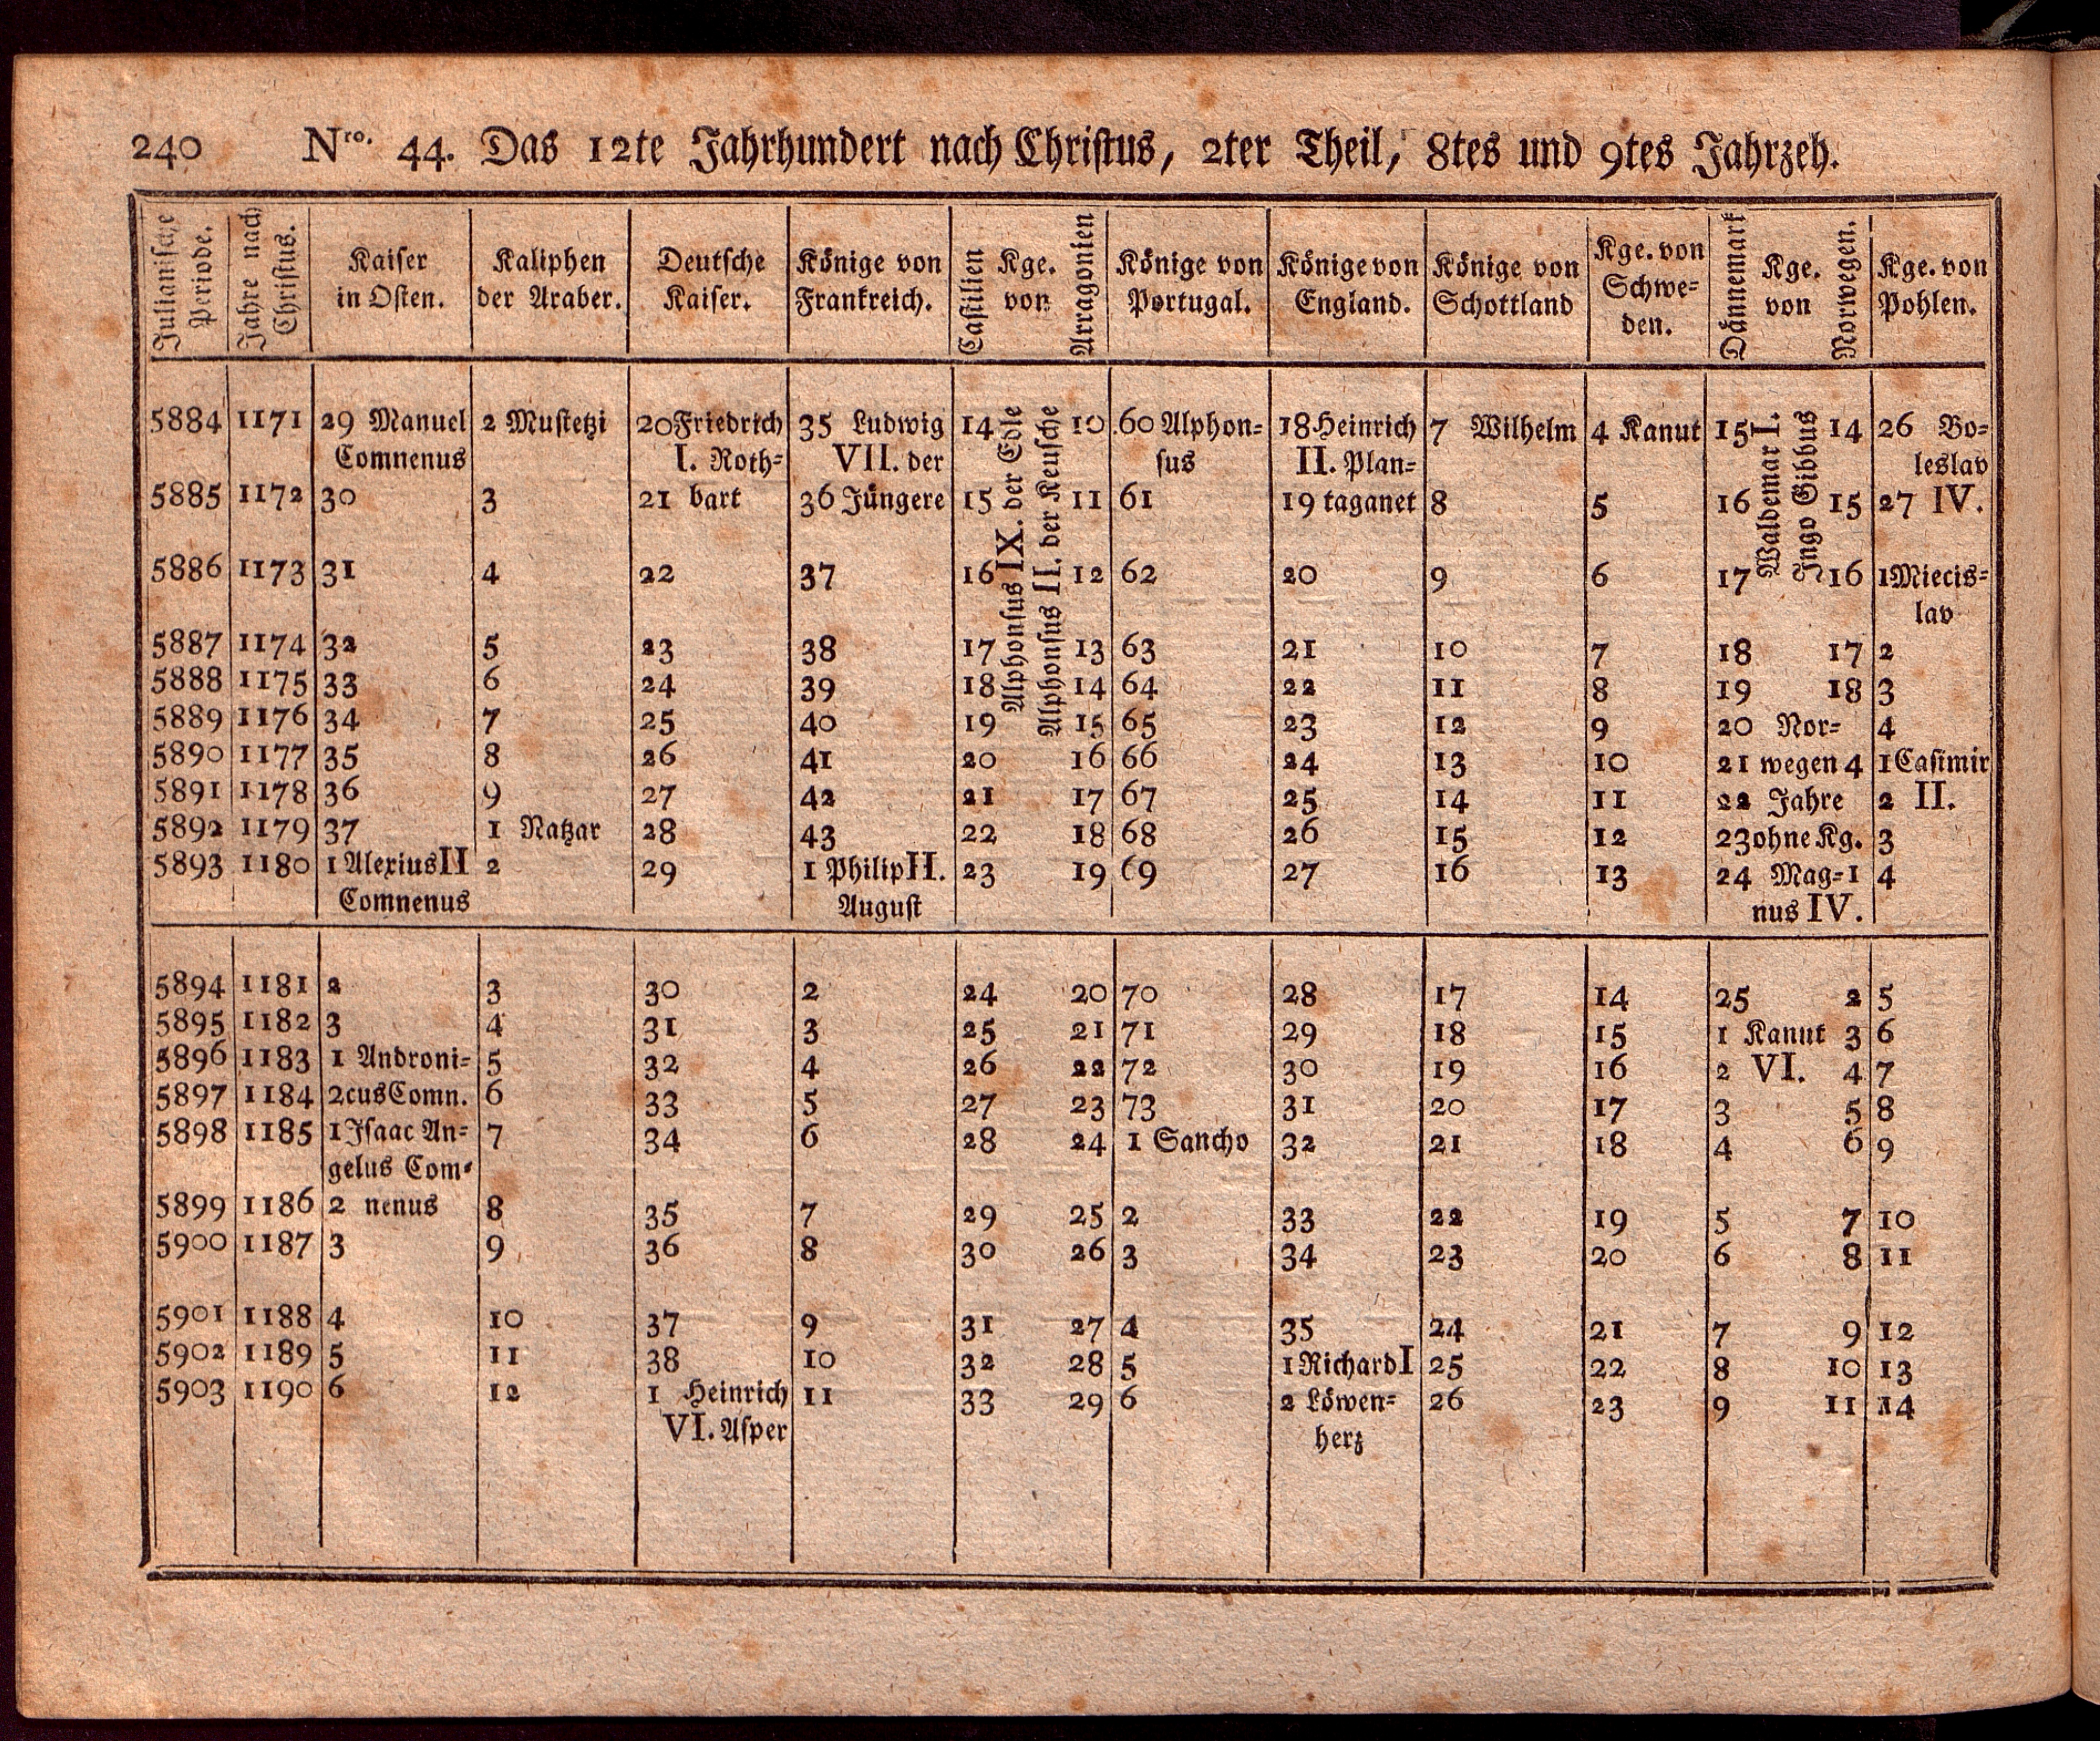 240 Nro. 44. Das 12te Jahrhundert nach Christus, 2ter Theil, 8tes und 9tes Jahrzeh.
Julianische Periode. | Jahre nach Christus. | Kaiser in Osten. | Kaliphen der Araber. | Deutsche Kaiser. | Könige von Frankreich. | Castilien Kge. von Arragonien | Könige von Portugal. | Könige von England. | Könige von Schottland | Kge. von Schwe= den. | Dännemark Kge. von Norwegen. | Kge. von Pohlen.
Alphonsus IX. der Edle
Alphonsus II. der Keusche
Waldemar I.
Ingo Gibbus
5884 1171 29 Manuel 2 Mustetzi 20 Friedrich 35 Ludwig 14 10 60 Alphon= 18 Heinrich 7 Wilhelm 4 Kanut 15 14 26 Bo=
Comnenus I. Roth= VII. der sus II. Plan= leslav
5885 1172 30 3 21 bart 36 Jüngere 15 11 61 19 taganet 8 5 16 15 27 IV.
5886 1173 31 4 22 37 16 12 62 20 9 6 17 16 1 Miecis=
lav
5887 1174 32 5 23 38 17 13 63 21 10 7 18 17 2
5888 1175 33 6 24 39 18 14 64 22 11 8 19 18 3
5889 1176 34 7 25 40 19 15 65 23 12 9 20 Nor= 4
5890 1177 35 8 26 41 20 16 66 24 13 10 21 wegen 4 1 Casimir
5891 1178 36 9 27 42 21 17 67 25 14 11 22 Jahre 2 II.
5892 1179 37 1 Natzar 28 43 22 18 68 26 15 12 23 ohne Kg. 3
5893 1180 1 Alexius II 2 29 1 Philip II. 23 19 69 27 16 13 24 Mag= 1 4
Comnenus August nus IV.
5894 1181 2 3 30 2 24 20 70 28 17 14 25 2 5
5895 1182 3 4 31 3 25 21 71 29 18 15 1 Kanut 3 6
5896 1183 1 Androni= 5 32 4 26 22 72 30 19 16 2 VI. 4 7
5897 1184 2 cus Comn. 6 33 5 27 23 73 31 20 17 3 5 8
5898 1185 1 Isaac An= 7 34 6 28 24 1 Sancho 32 21 18 4 6 9
gelus Com=
5899 1186 2 nenus 8 35 7 29 25 2 33 22 19 5 7 10
5900 1187 3 9 36 8 30 26 3 34 23 20 6 8 11
5901 1188 4 10 37 9 31 27 4 35 24 21 7 9 12
5902 1189 5 11 38 10 32 28 5 1 Richard I 25 22 8 10 13
5903 1190 6 12 1 Heinrich 11 33 29 6 2 Löwen= 26 23 9 11 14
VI. Asper herz